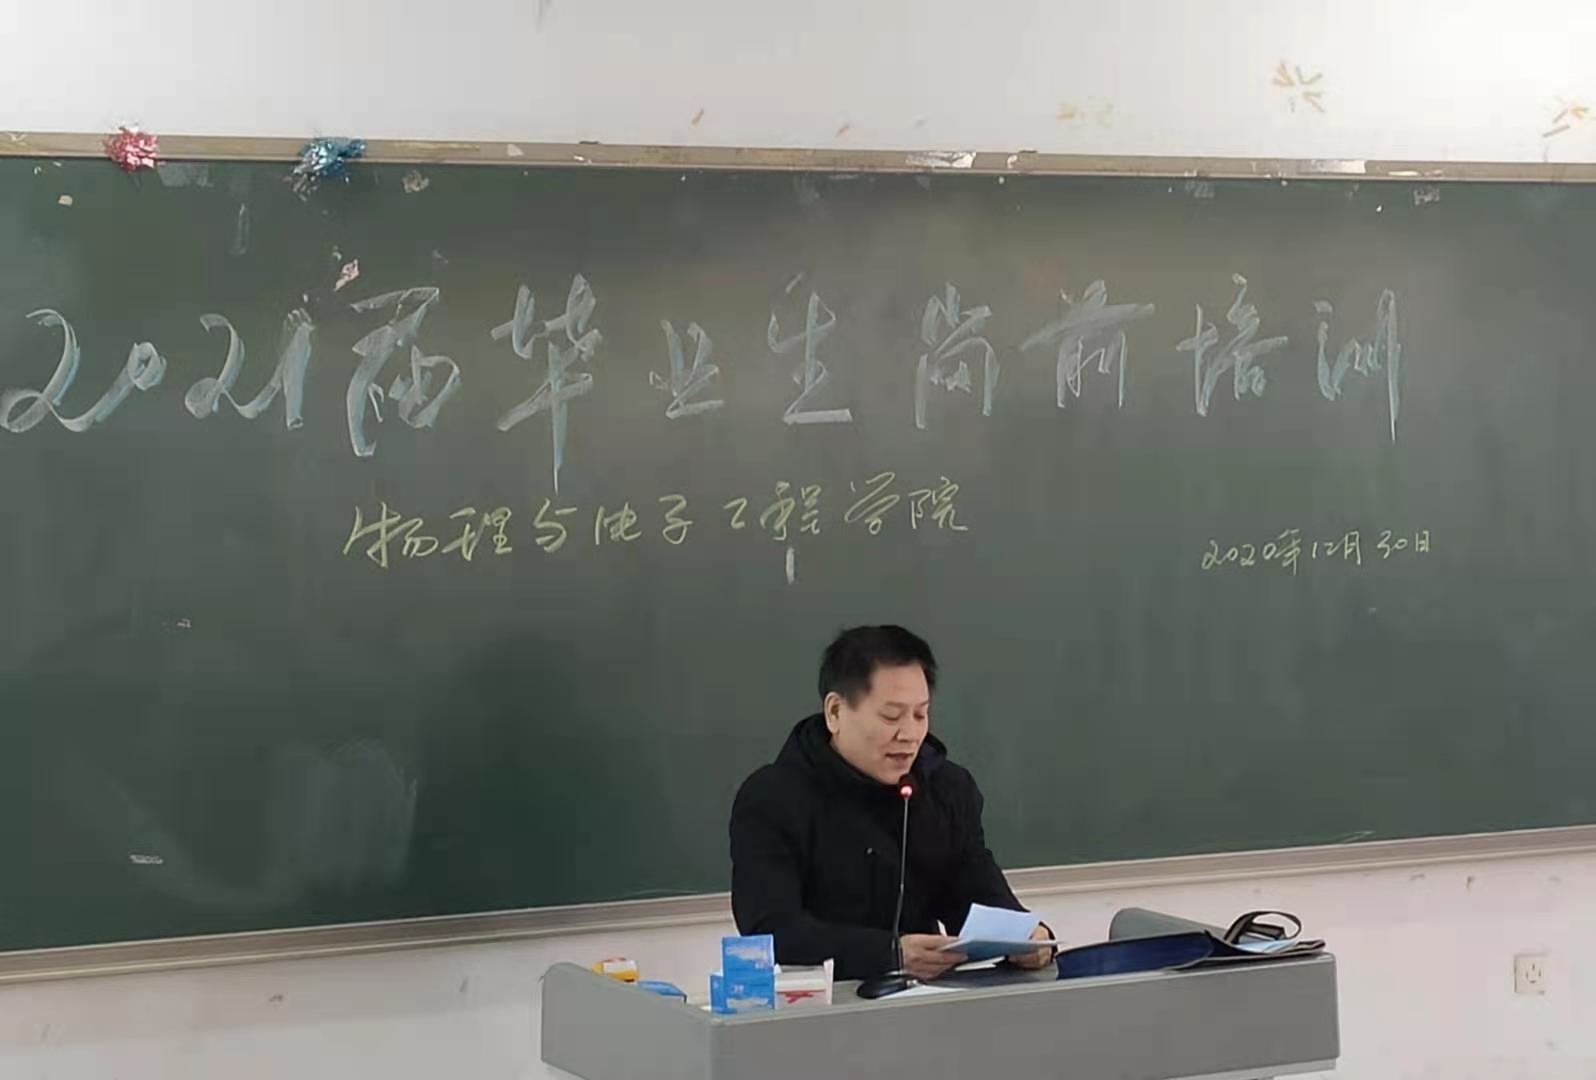 2021届毕业生岗前培训
物理与电子工程学院
2020年12月30日